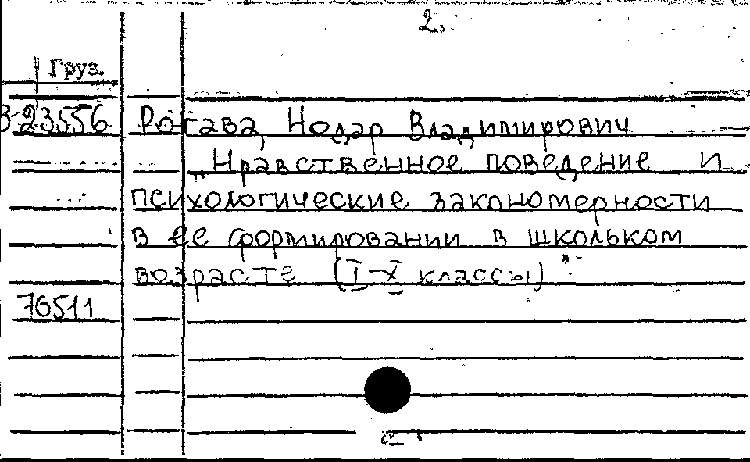 2.
Груз.
323556 Рогава, Нодар Владимирович
„Нравственное поведение и
психологические закономерности
в ее формировании в школьком
возрасте (I-X классы)"
76511